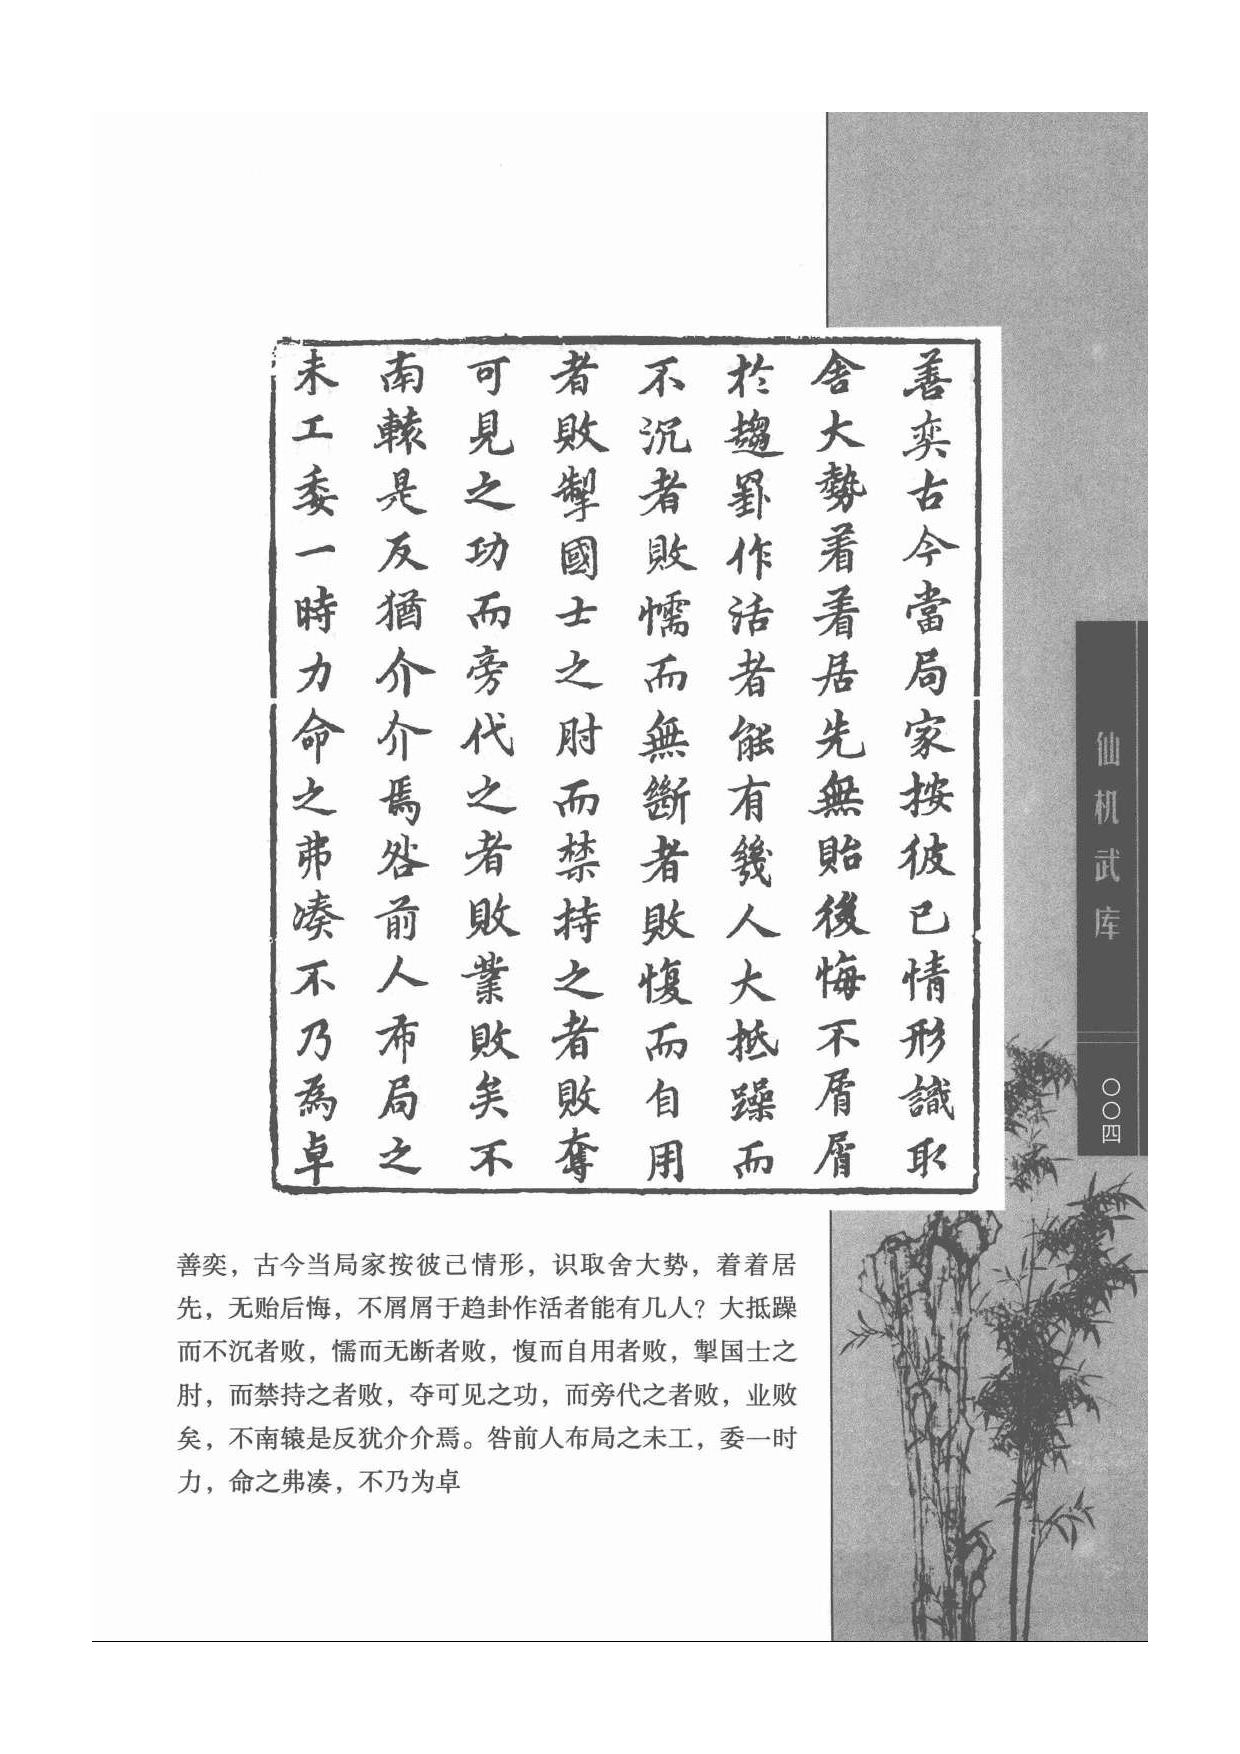 善奕古今當局家按彼己情形識取
舍大勢着着居先無貽後悔不屑屑
於趨罫作活者能有幾人大抵躁而
不沉者敗懦而無斷者敗愎而自用
者敗掣國士之肘而禁持之者敗奪
可見之功而旁代之者敗業敗矣不
南轅是反猶介介焉咎前人布局之
未工委一時力命之弗湊不乃為卓
善奕，古今当局家按彼己情形，识取舍大势，着着居
先，无贻后悔，不屑屑于趋卦作活者能有几人？大抵躁
而不沉者败，懦而无断者败，愎而自用者败，掣国士之
肘，而禁持之者败，夺可见之功，而旁代之者败，业败
矣，不南辕是反犹介介焉。咎前人布局之未工，委一时
力，命之弗凑，不乃为卓
仙机武库
〇〇四